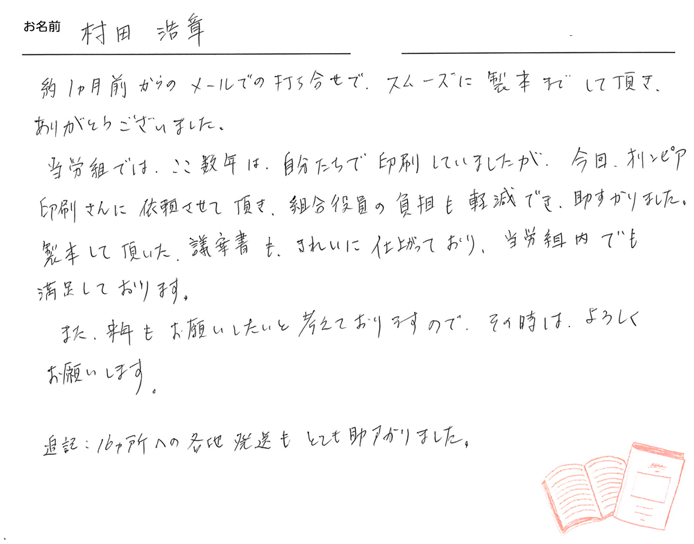 お名前 村田 浩章
約1ヵ月前からのメールでの打ち合せで、スムーズに製本までして頂き、
ありがとうございました。
当労組では、ここ数年は、自分たちで印刷していましたが、今回、オリンピア
印刷さんに依頼させて頂き、組合役員の負担も軽減でき、助すかりました。
製本して頂いた、議案書も、きれいに仕上がっており、当労組内でも
満足しております。
また、来年もお願いしたいと考えておりますので、その時は、よろしく
お願いします。
追記:16ヵ所への各地発送もとても助すかりました。